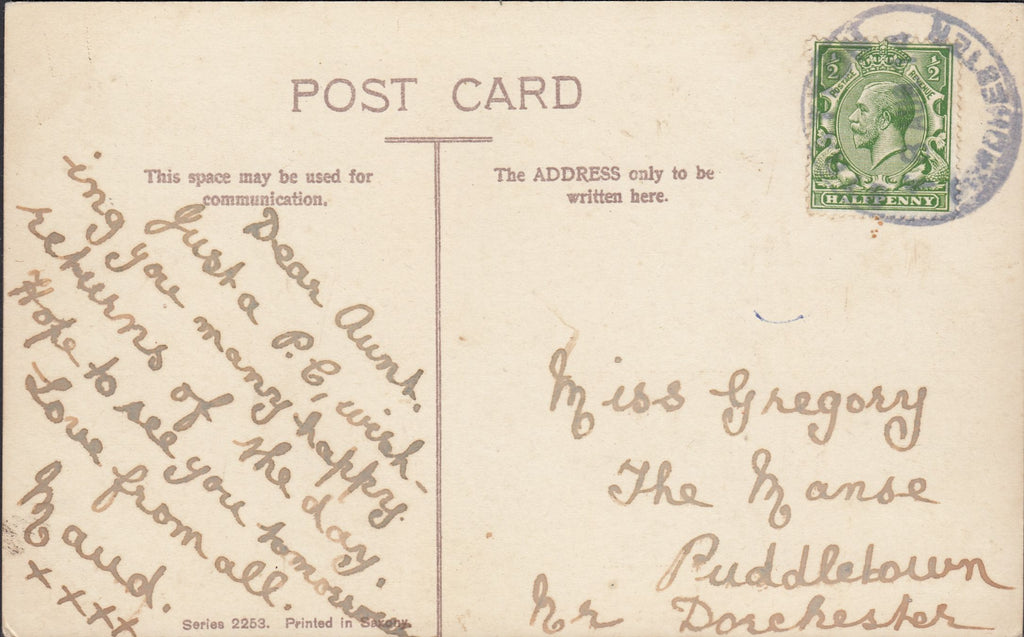 POST CARD
This space may be used for
communication.
The ADDRESS only to be
written here.
½ ½
POSTAGE REVENUE
HALFPENNY
Dear Aunt.
Just a P.C, wish-
ing you many happy
returns of the day.
Hope to see you tomorrow
Love from all.
Maud.
x x x x
Miss Gregory
The Manse
Puddletown
Nr Dorchester
Series 2253. Printed in Saxony.